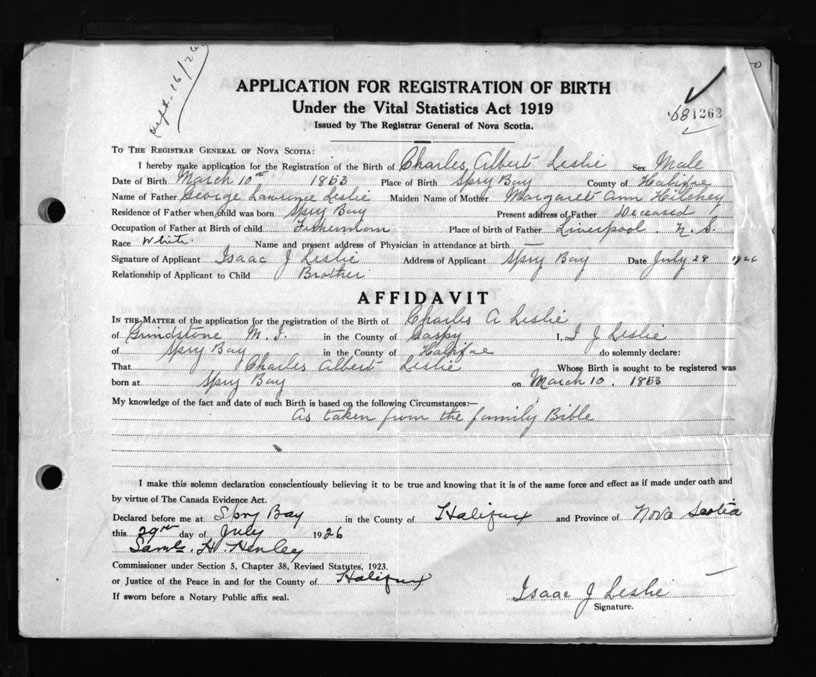 Sept. 16/26
APPLICATION FOR REGISTRATION OF BIRTH
Under the Vital Statistics Act 1919
Issued by The Registrar General of Nova Scotia.
681262
TO THE REGISTRAR GENERAL OF NOVA SCOTIA:
I hereby make application for the Registration of the Birth of Charles Albert Leslie Sex Male
Date of Birth March 10th 1853 Place of Birth Spry Bay County of Halifax
Name of Father George Lawrence Leslie Maiden Name of Mother Margaret Ann Hilchey
Residence of Father when child was born Spry Bay Present address of Father Deceased
Occupation of Father at Birth of child Fisherman Place of birth of Father Liverpool. N. S.
Race White Name and present address of Physician in attendance at birth —
Signature of Applicant Isaac J Leslie Address of Applicant Spry Bay Date July 28 1926
Relationship of Applicant to Child Brother
AFFIDAVIT
IN THE MATTER of the application for the registration of the Birth of Charles A Leslie
of Grindstone M. I. in the County of Gaspy I, I J Leslie
of Spry Bay in the County of Halifax do solemnly declare:
That Charles Albert Leslie Whose Birth is sought to be registered was
born at Spry Bay on March 10. 1853
My knowledge of the fact and date of such Birth is based on the following Circumstances:—
As taken from the family Bible
I make this solemn declaration conscientiously believing it to be true and knowing that it is of the same force and effect as if made under oath and
by virtue of The Canada Evidence Act.
Declared before me at Spry Bay in the County of Halifax and Province of Nova Scotia
this 29th day of July 1926
Saml. H. Henley
Commissioner under Section 5, Chapter 38, Revised Statutes, 1923.
or Justice of the Peace in and for the County of Halifax
If sworn before a Notary Public affix seal.
Isaac J Leslie
Signature.